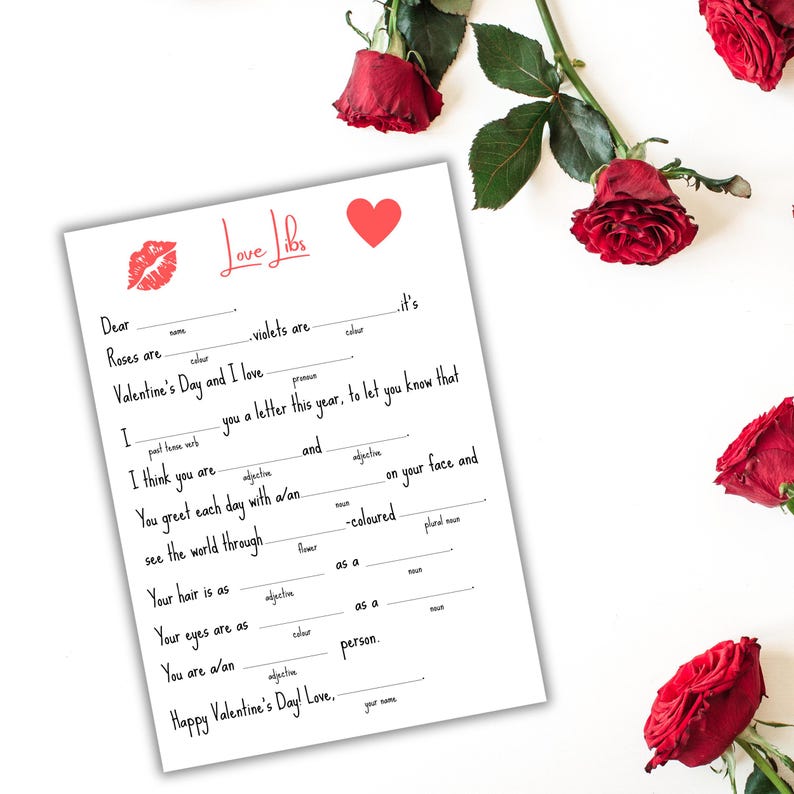 Love Libs
Dear ____________.
name
Roses are ____________.violets are ____________.it's
colour colour
Valentine's Day and I love ____________.
pronoun
I ____________ you a letter this year, to let you know that
past tense verb
I think you are ____________ and ____________.
adjective adjective
You greet each day with a/an ____________ on your face and
noun
see the world through ____________ -coloured ____________.
flower plural noun
Your hair is as ____________ as a ____________.
adjective noun
Your eyes are as ____________ as a ____________.
colour noun
You are a/an ____________ person.
adjective
Happy Valentine's Day! Love, ____________.
your name